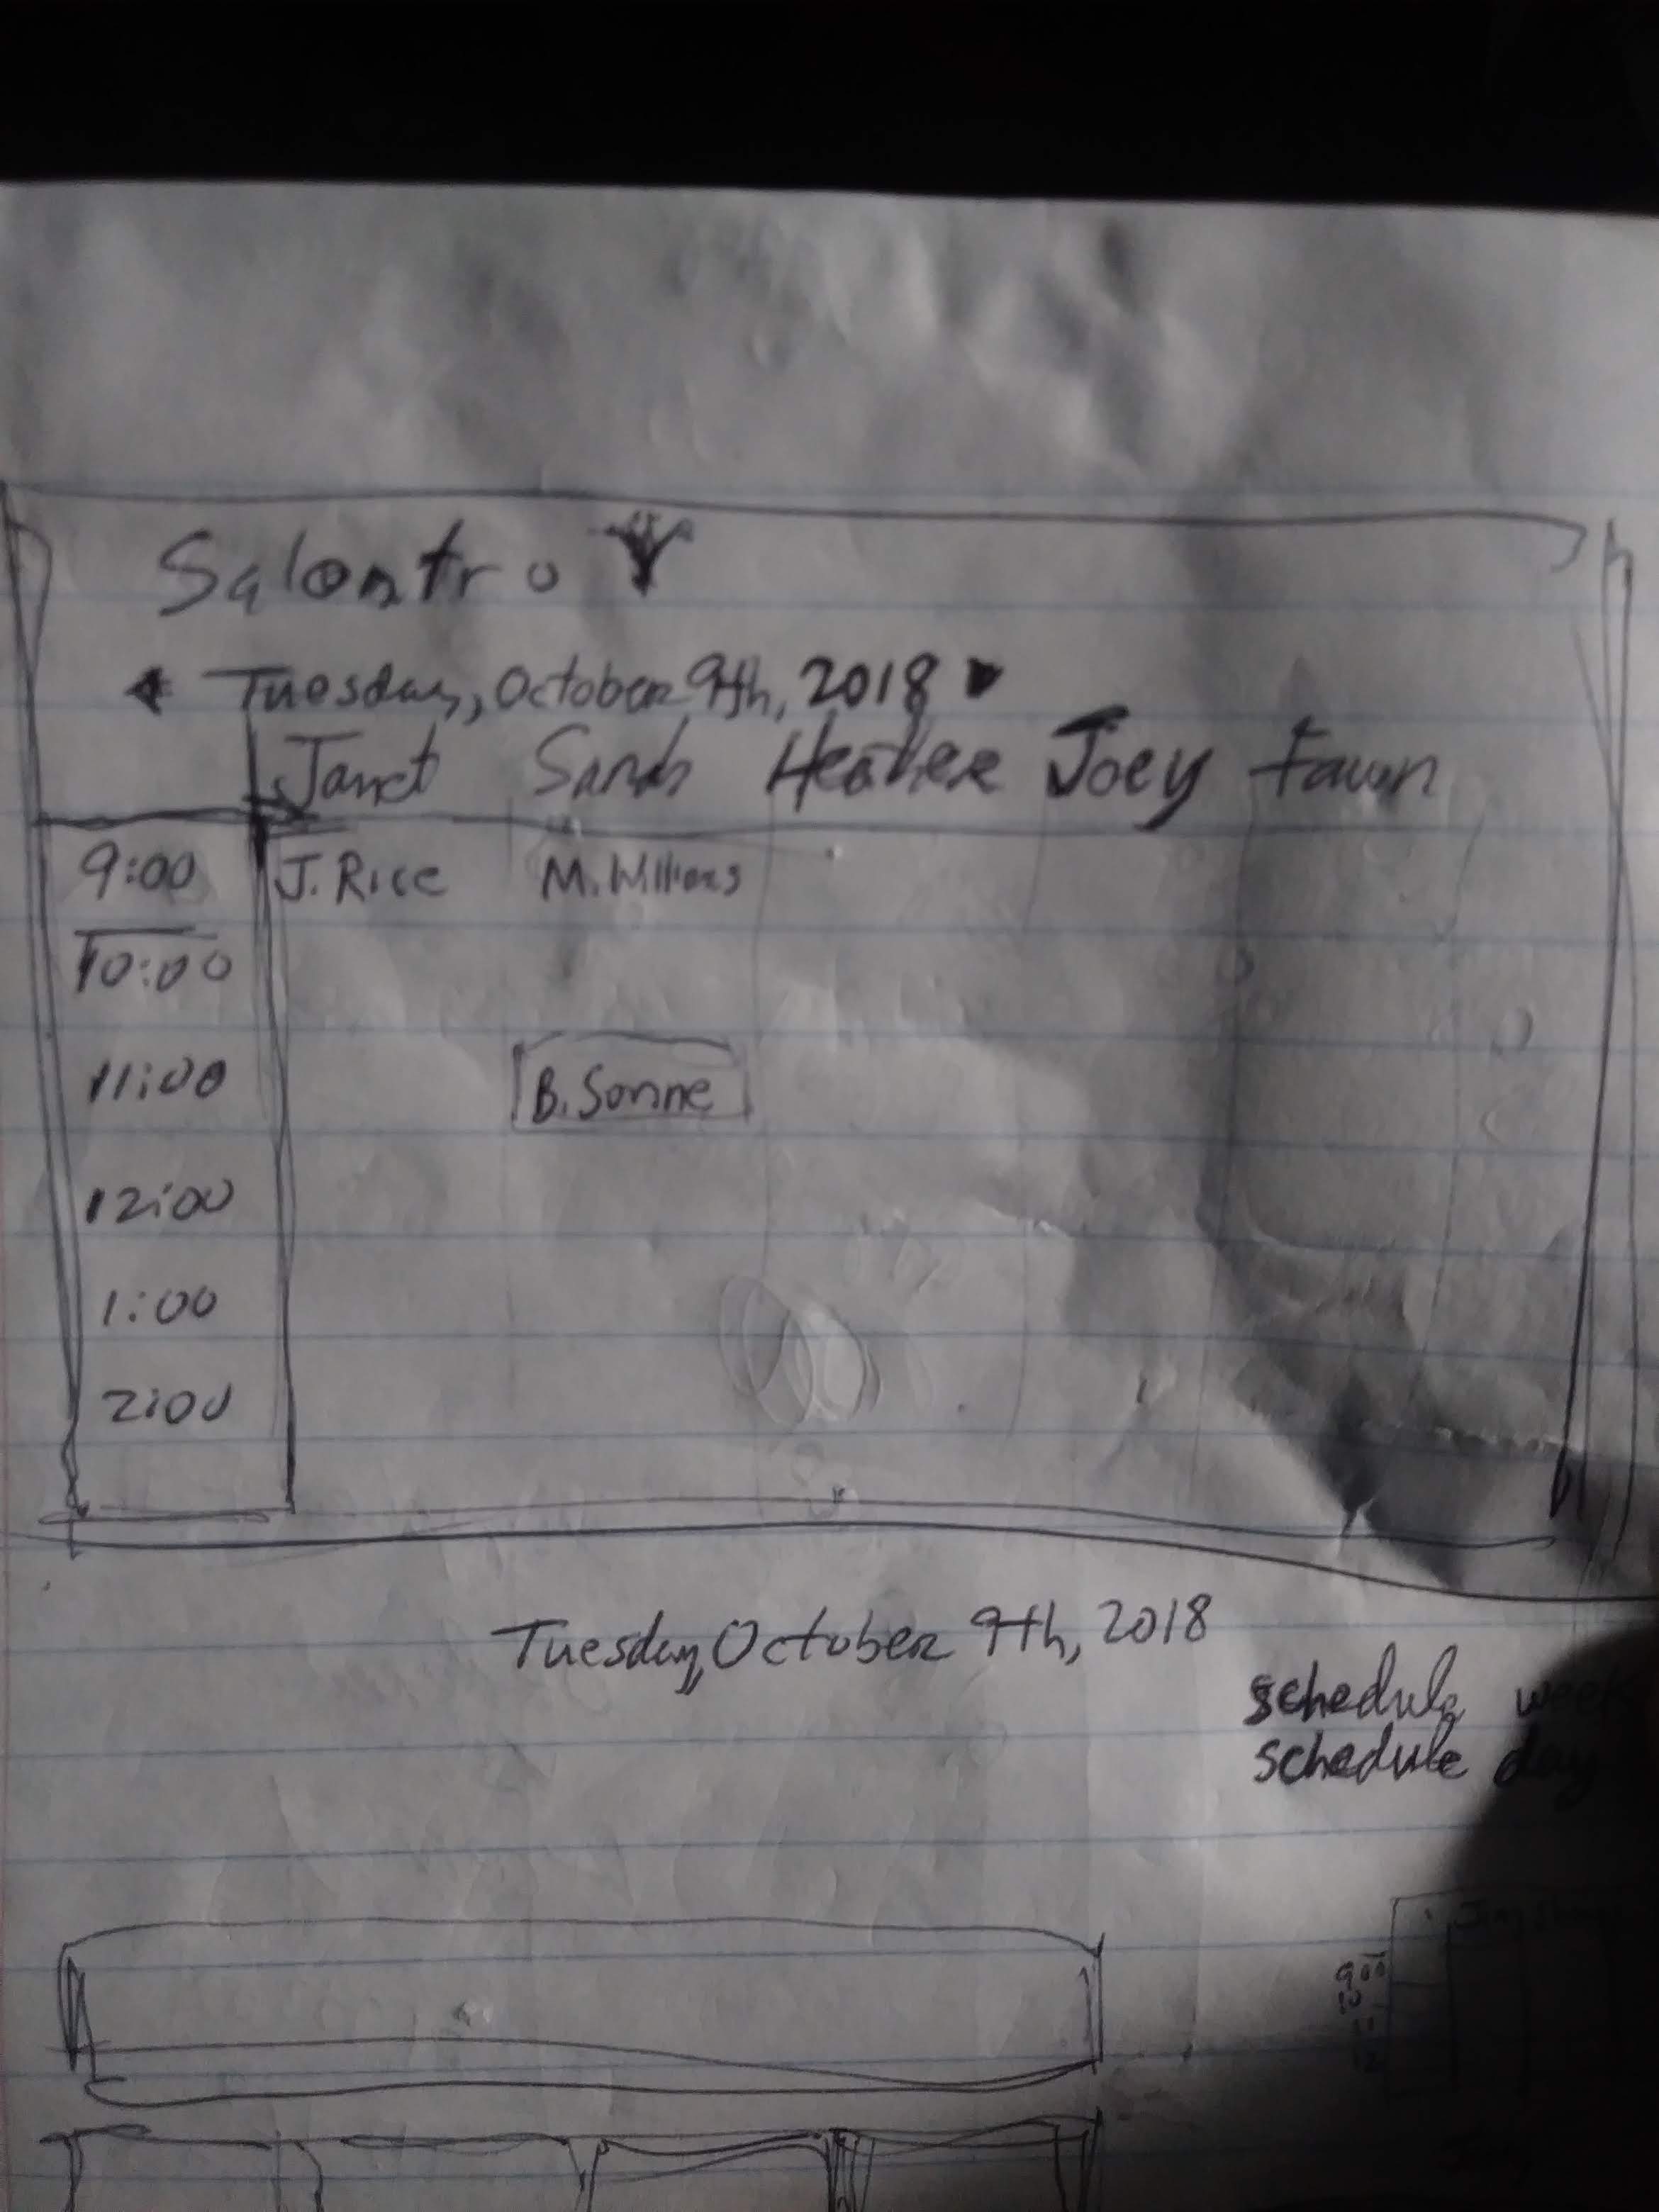 Salontro
Tuesday, October 9th, 2018
Janet Sarah Heather Joey Fawn
9:00 J. Rice M. Williams
10:00
11:00 B. Sonne
12:00
1:00
2:00
Tuesday, October 9th, 2018
schedule week
schedule day
9:00
10
11
12